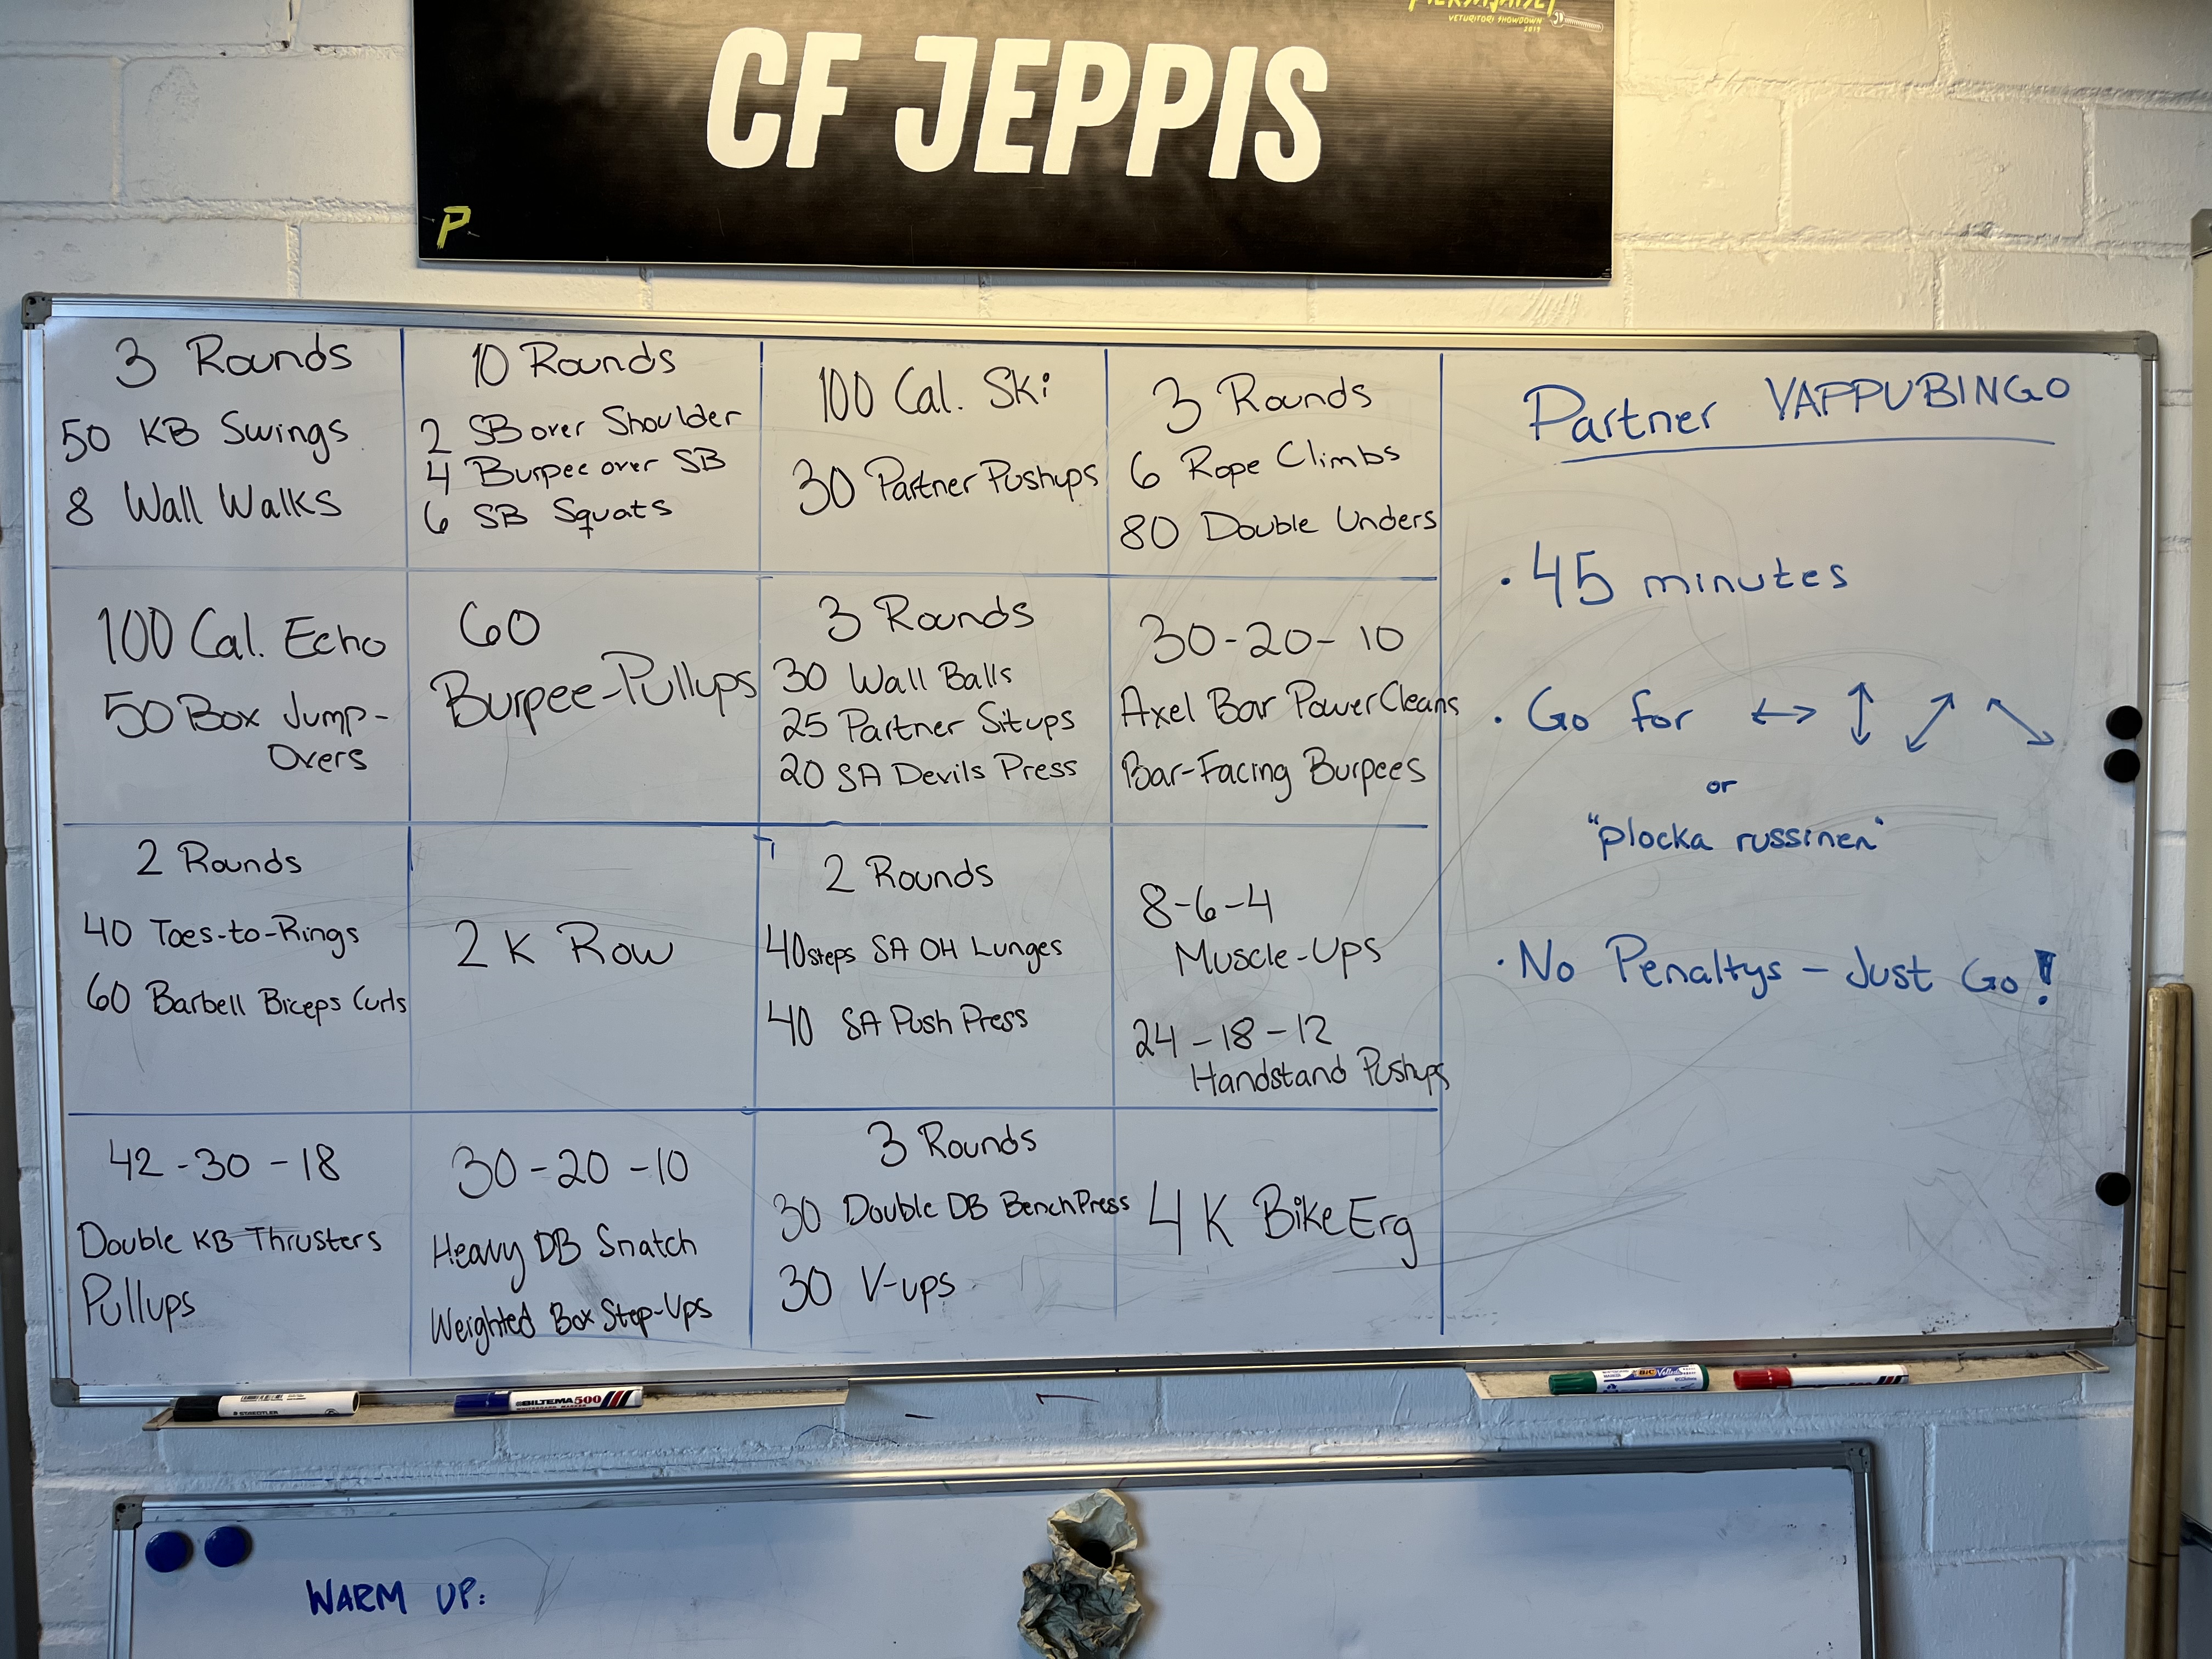 VETURITORI SHOWDOWN
2019
CF JEPPIS
P
3 Rounds
50 KB Swings
8 Wall Walks
10 Rounds
2 SB over Shoulder
4 Burpee over SB
6 SB Squats
100 Cal. Ski
30 Partner Pushups
3 Rounds
6 Rope Climbs
80 Double Unders
100 Cal. Echo
50 Box Jump-
Overs
60
Burpee-Pullups
3 Rounds
30 Wall Balls
25 Partner Situps
20 SA Devils Press
30-20-10
Axel Bar Power Cleans
Bar-Facing Burpees
2 Rounds
40 Toes-to-Rings
60 Barbell Biceps Curls
2 K Row
2 Rounds
40 steps SA OH Lunges
40 SA Push Press
8-6-4
Muscle-Ups
24-18-12
Handstand Pushups
42-30-18
Double KB Thrusters
Pullups
30-20-10
Heavy DB Snatch
Weighted Box Step-Ups
3 Rounds
30 Double DB Bench Press
30 V-ups
4 K BikeErg
Partner VAPPUBINGO
• 45 minutes
• Go for ↔ ↕ ⤢ ⤡
or
"plocka russinen"
• No Penaltys - Just Go!
STAEDTLER
BILTEMA 500
BIC Velleda
WARM UP: